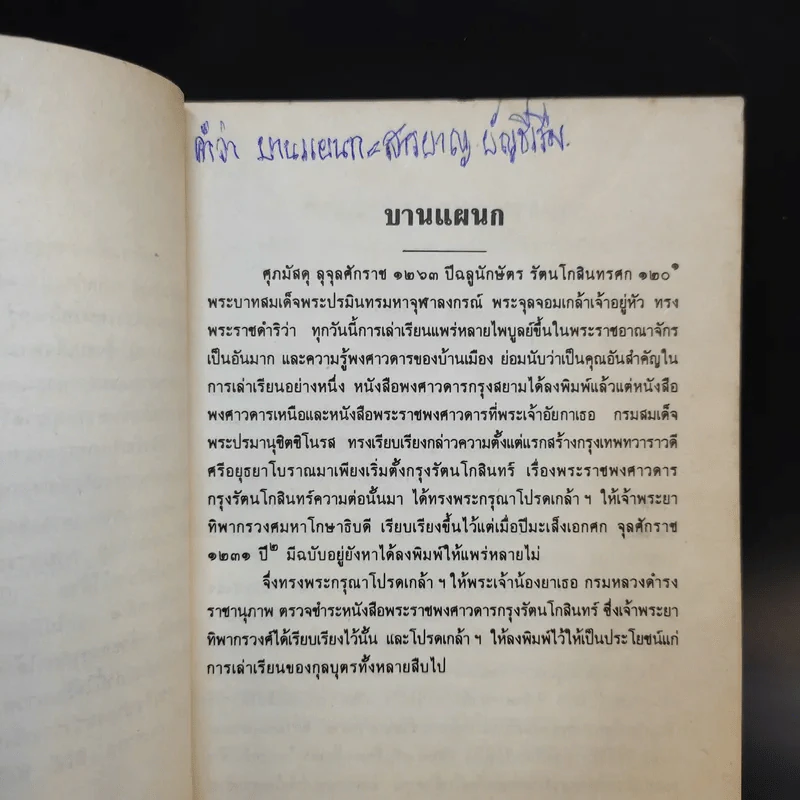 คำว่า บานแผนก = สารบาญ บัญชีเรื่อง.
บานแผนก
ศุภมัสดุ ลุจุลศักราช ๑๒๖๓ ปีฉลูนักษัตร รัตนโกสินทรศก ๑๒๐๑
พระบาทสมเด็จพระปรมินทรมหาจุฬาลงกรณ์ พระจุลจอมเกล้าเจ้าอยู่หัว ทรง
พระราชดำริว่า ทุกวันนี้การเล่าเรียนแพร่หลายไพบูลย์ขึ้นในพระราชอาณาจักร
เป็นอันมาก และความรู้พงศาวดารของบ้านเมือง ย่อมนับว่าเป็นคุณอันสำคัญใน
การเล่าเรียนอย่างหนึ่ง หนังสือพงศาวดารกรุงสยามได้ลงพิมพ์แล้วแต่หนังสือ
พงศาวดารเหนือและหนังสือพระราชพงศาวดารที่พระเจ้าอัยกาเธอ กรมสมเด็จ
พระปรมานุชิตชิโนรส ทรงเรียบเรียงกล่าวความตั้งแต่แรกสร้างกรุงเทพทวาราวดี
ศรีอยุธยาโบราณมาเพียงเริ่มตั้งกรุงรัตนโกสินทร์ เรื่องพระราชพงศาวดาร
กรุงรัตนโกสินทร์ความต่อนั้นมา ได้ทรงพระกรุณาโปรดเกล้า ฯ ให้เจ้าพระยา
ทิพากรวงศมหาโกษาธิบดี เรียบเรียงขึ้นไว้แต่เมื่อปีมะเส็งเอกศก จุลศักราช
๑๒๓๑ ปี๒ มีฉบับอยู่ยังหาได้ลงพิมพ์ให้แพร่หลายไม่
จึ่งทรงพระกรุณาโปรดเกล้า ฯ ให้พระเจ้าน้องยาเธอ กรมหลวงดำรง
ราชานุภาพ ตรวจชำระหนังสือพระราชพงศาวดารกรุงรัตนโกสินทร์ ซึ่งเจ้าพระยา
ทิพากรวงศ์ได้เรียบเรียงไว้นั้น และโปรดเกล้า ฯ ให้ลงพิมพ์ไว้ให้เป็นประโยชน์แก่
การเล่าเรียนของกุลบุตรทั้งหลายสืบไป